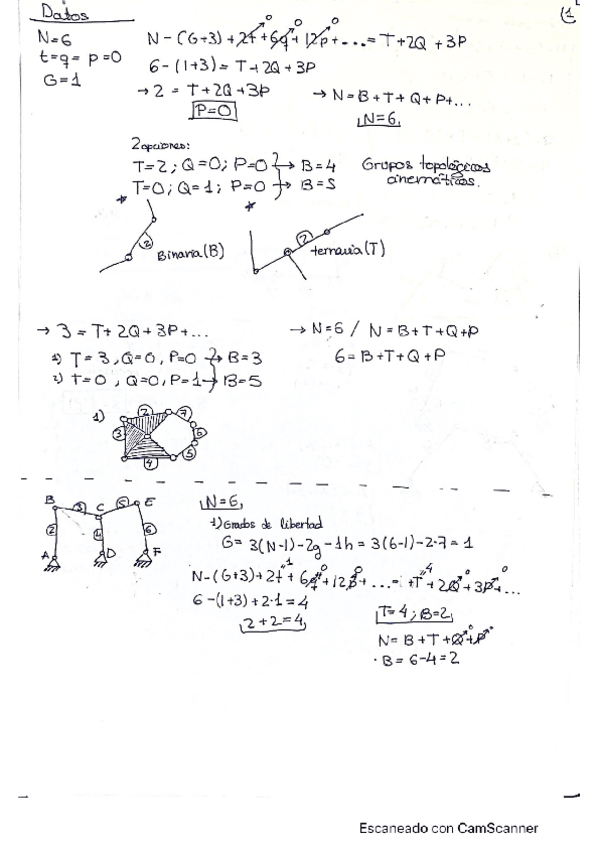 Datos
(1
N=6
t=q=p=0
G=1
N-(G+3)+2t+6q+12p+...=T+2Q+3P
0 0 0
6-(1+3)=T+2Q+3P
→2=T+2Q+3P
P=0
→N=B+T+Q+P+...
N=6
2 opciones:
T=2; Q=0; P=0 → B=4
T=0; Q=1; P=0 → B=5
Grupos topológicos
cinemáticos.
2
Binaria(B)
2
ternaria(T)
→ 3=T+2Q+3P+...
→N=6/ N=B+T+Q+P
1) T=3, Q=0, P=0 → B=3
6=B+T+Q+P
2) T=0, Q=0, P=1 → B=5
1)
2 7
3 6
4 5
B 3 C 5 E
2 4 6
A D F
N=6
1) Grados de libertad
G=3(N-1)-2g-1h=3(6-1)-2·7=1
N-(G+3)+2t+6q+12p+...=+T+2Q+3P+...
1 0 0 4 0 0
6-(1+3)+2·1=4
2+2=4
T=4; B=2
N=B+T+Q+P
0 0
·B=6-4=2
Escaneado con CamScanner